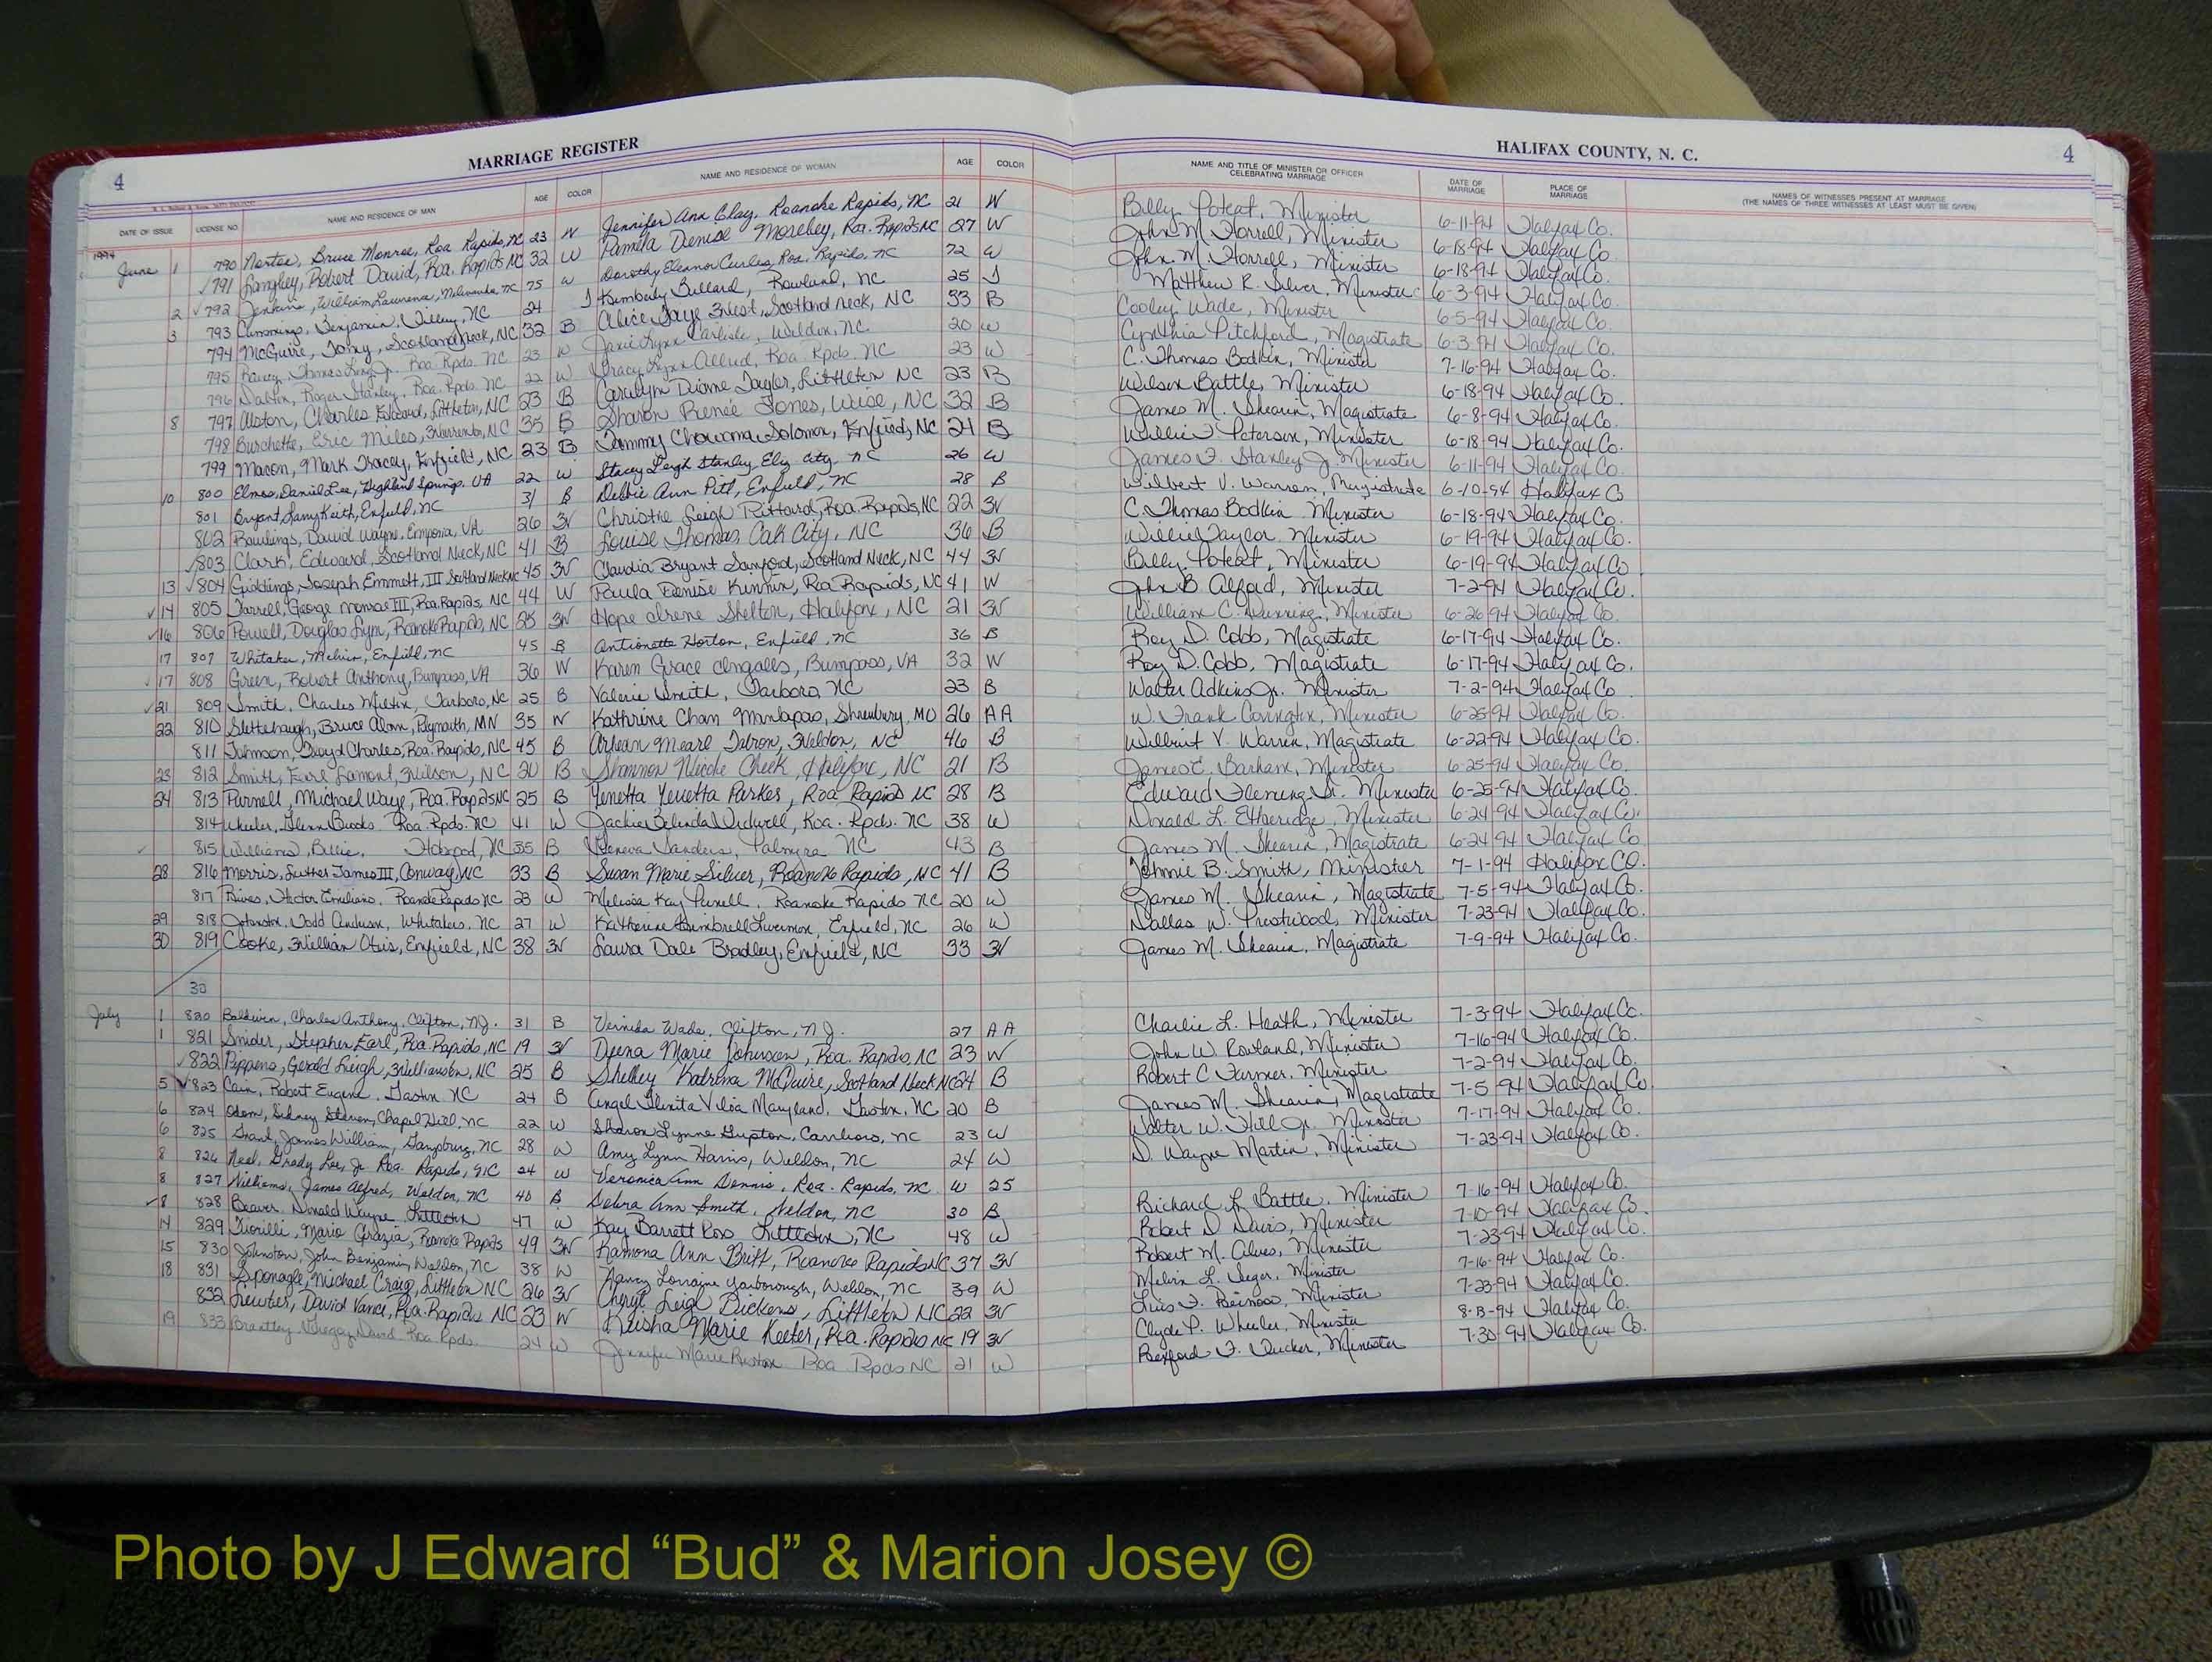 MARRIAGE REGISTER
HALIFAX COUNTY, N. C.
4
4
DATE OF ISSUE LICENSE NO. NAME AND RESIDENCE OF MAN AGE COLOR NAME AND RESIDENCE OF WOMAN AGE COLOR NAME AND TITLE OF MINISTER OR OFFICER CELEBRATING MARRIAGE DATE OF MARRIAGE PLACE OF MARRIAGE NAMES OF WITNESSES PRESENT AT MARRIAGE (THE NAMES OF THREE WITNESSES AT LEAST MUST BE GIVEN)
1994
June 1 790 Bruce Monroe, Roa Rapids, NC 23 W Jennifer Ann Clay, Roanoke Rapids, NC 21 W Billy Poteat, Minister 6-11-94 Halifax Co.
791 Langley, Robert David, Roa. Rapids NC 32 W Pamela Denise Moseley, Roa. Rapids NC 27 W John M. Horrell, Minister 6-18-94 Halifax Co.
2 792 Jenkins, William Lawrence, NC 75 W Dorothy Eleanor Curles, Roa. Rapids, NC 72 W John M. Horrell, Minister 6-18-94 Halifax Co.
3 793 Cummings, Benjamin, NC 24 I Kimberly Bullard, Rowland, NC 25 I Matthew R. Silver, Minister 6-3-94 Halifax Co.
794 McGuire, Tony, Scotland Neck, NC 32 B Alice Faye West, Scotland Neck, NC 33 B Cooley Wade, Minister 6-5-94 Halifax Co.
795 Thomas King Jr. Roa. Rpds. NC 23 W Janie Lynn Carlisle, Weldon, NC 20 W Cynthia Pitchford, Magistrate 6-3-94 Halifax Co.
796 Roger Stanley, Roa. Rpds. NC 22 W Tracy Lynn Allred, Roa. Rpds. NC 23 W C. Thomas Bodkin, Minister 7-16-94 Halifax Co.
8 797 Alston, Charles Edward, Littleton, NC 23 B Caralyn Dionne Taylor, Littleton NC 23 B Wilson Battle, Minister 6-18-94 Halifax Co.
798 Burchette, Eric Miles, Warrenton, NC 35 B Sharon Reneé Jones, Wise, NC 32 B James M. Shearin, Magistrate 6-8-94 Halifax Co.
799 Macon, Mark Tracey, Enfield, NC 23 B Tammy Solomon, Enfield, NC 21 B Willie J. Peterson, Minister 6-18-94 Halifax Co.
10 800 Elmes, Daniel Lee, Highland Springs, VA 22 W Stacey Leigh Stanley Eliz. City, NC 26 W James F. Stanley Jr. Minister 6-11-94 Halifax Co.
801 Bryant, Larry Keith, Enfield, NC 31 B Debbie Ann Pitt, Enfield, NC 28 B Wilbert V. Warren, Magistrate 6-10-94 Halifax Co
802 Rawlings, David Wayne, Emporia, VA 26 W Christine Leigh Pittard, Roa. Rapids, NC 22 W C. Thomas Bodkin Minister 6-18-94 Halifax Co.
803 Clark, Edward, Scotland Neck, NC 41 B Louise Thomas, Oak City, NC 36 B Willie Taylor, Minister 6-19-94 Halifax Co.
13 804 Giddings, Joseph Emmett, III Scotland Neck NC 45 W Claudia Bryant Sanford, Scotland Neck, NC 44 W Billy Poteat, Minister 6-19-94 Halifax Co
14 805 Farrell, George Monroe III, Roa. Rapids, NC 44 W Paula Denise Kinkin, Roa Rapids, NC 41 W John B Alford, Minister 7-2-94 Halifax Co.
16 806 Powell, Douglas Lynn, Roanoke Rapids, NC 35 W Hope Irene Shelton, Halifax, NC 21 W William C. Minister 6-26-94 Halifax Co.
17 807 Whitaker, Melvin, Enfield, NC 45 B Antionette Horton, Enfield, NC 36 B Roy D. Cobb, Magistrate 6-17-94 Halifax Co.
17 808 Green, Robert Anthony, Bumpass, VA 36 W Karen Grace Ingalls, Bumpass, VA 32 W Roy D. Cobb, Magistrate 6-17-94 Halifax Co.
21 809 Smith, Charles Milton, Tarboro, NC 25 B Valerie Smith, Tarboro, NC 23 B Walter Adkins Jr. Minister 7-2-94 Halifax Co
22 810 Slettehaugh, Bruce Alan, Plymouth, MN 35 W Kathrine Chan Manlapas, Shrewbury, MO 26 AA W. Frank Covington, Minister 6-25-94 Halifax Co.
811 Johnson, Floyd Charles, Roa. Rapids, NC 45 B Arlean Mearl Tabron, Weldon, NC 46 B Wilbert V. Warren, Magistrate 6-22-94 Halifax Co.
23 812 Smith, Earl Lamont, Wilson, NC 20 B Shannon Nicole Cheek, Halifax, NC 21 B James E. Barham, Minister 6-25-94 Halifax Co.
24 813 Purnell, Michael Waye, Roa. Rapids NC 25 B Yenetta Parker, Roa Rapids NC 28 B Edward Fleming Sr. Minister 6-25-94 Halifax Co.
814 Wheeler, Glenn Brooks, Roa. Rpds. NC 41 W Jackie Belinda Vidwell, Roa. Rpds. NC 38 W Donald L. Etheridge, Minister 6-24-94 Halifax Co.
815 Williams, Billie, Hobgood, NC 35 B Geneva Sanders, Palmyra NC 43 B James M. Shearin, Magistrate 6-24-94 Halifax Co
28 816 Morris, Luther James III, Conway, NC 33 B Susan Marie Silver, Roanoke Rapids, NC 41 B Johnnie B. Smith, Minister 7-1-94 Halifax CO.
817 Rives, Victor Emiliano, Roanoke Rapids NC 23 W Melissa Kay Purnell, Roanoke Rapids NC 20 W James M. Shearin, Magistrate 7-5-94 Halifax Co.
29 818 Johnston, Todd Anderson, Whitakers, NC 27 W Katherine Kimbrell Livermon, Enfield, NC 26 W Dallas W. Prestwood, Minister 7-23-94 Halifax Co.
30 819 Cooke, William Otis, Enfield, NC 38 W Laura Dale Bradley, Enfield, NC 33 W James M. Shearin, Magistrate 7-9-94 Halifax Co.
30
July 1 820 Baldwin, Charles Anthony, Clifton, NJ. 31 B Vernida Wade, Clifton, NJ. 27 AA Charlie L. Heath, Minister 7-3-94 Halifax Co.
1 821 Snider, Stephen Earl, Roa. Rapids, NC 19 W Deena Marie Johnson, Roa. Rapids, NC 23 W John W. Rowland, Minister 7-16-94 Halifax Co.
822 Pippens, Gerald Leigh, Williamston, NC 25 B Shelley Katrina McGuire, Scotland Neck NC 24 B Robert C Farmer, Minister 7-2-94 Halifax Co.
5 823 Cain, Robert Eugene, Gaston NC 24 B Angel Maryland, Gaston, NC 20 B James M. Shearin, Magistrate 7-5-94 Halifax Co.
6 824 Odom, Sidney Steven, Chapel Hill, NC 22 W Sharon Lynne Gupton, Carrboro, NC 23 W Walter W. Hill Jr. Minister 7-17-94 Halifax Co.
6 825 Grant, James William, Garysburg, NC 28 W Amy Lynn Harris, Weldon, NC 24 W D. Wayne Martin, Minister 7-23-94 Halifax Co.
8 826 Neal, Grady Lee, Jr. Roa. Rapids, NC 24 W Veronica Ann Dennis, Roa. Rapids, NC W 25
8 827 Williams, James Alfred, Weldon, NC 40 B Debra Ann Smith, Weldon, NC 30 B Richard L. Battle, Minister 7-16-94 Halifax Co.
8 828 Beaver, Donald Wayne Littleton 47 W Kay Barrett Ross Littleton, NC 48 W Robert D Davis, Minister 7-10-94 Halifax Co.
14 829 Fiorilli, Mario Grazia, Roanoke Rapids 49 W Ramona Ann Britt, Roanoke Rapids NC 37 W Robert M. Alves, Minister 7-23-94 Halifax Co.
15 830 Johnston, John Benjamin, Weldon, NC 38 W Nancy Lorraine Yarborough, Weldon, NC 39 W Melvin L. Seger, Minister 7-16-94 Halifax Co.
18 831 Sponagle, Michael Craig, Littleton NC 26 W Cheryl Leigh Dickens, Littleton NC 22 W Luis F. Reinoso, Minister 7-23-94 Halifax Co.
832 Lewter, David Vance, Roa. Rapids NC 23 W Keisha Marie Keeter, Roa. Rapids NC 19 W Clyde P. Wheeler, Minister 8-13-94 Halifax Co.
19 833 Brantley Gregory David Roa Rpds. 24 W Jennifer Marie Roa Rpds NC 21 W Rexford F. Tucker, Minister 7-30-94 Halifax Co.
Photo by J Edward “Bud” & Marion Josey ©